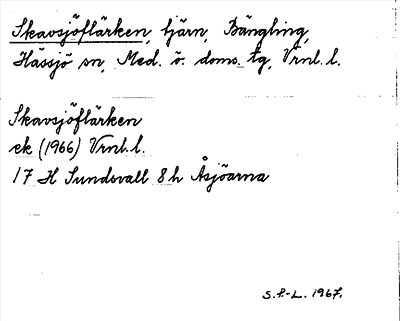 Skavsjöflärken, tjärn, Bängling,
Hässjö sn, Med. ö. doms. tg, Vrnl. l.
Skavsjöflärken
ek (1966) Vrnl. l.
17 H Sundsvall 8 h Åsjöarna
S.P.-L. 1967.